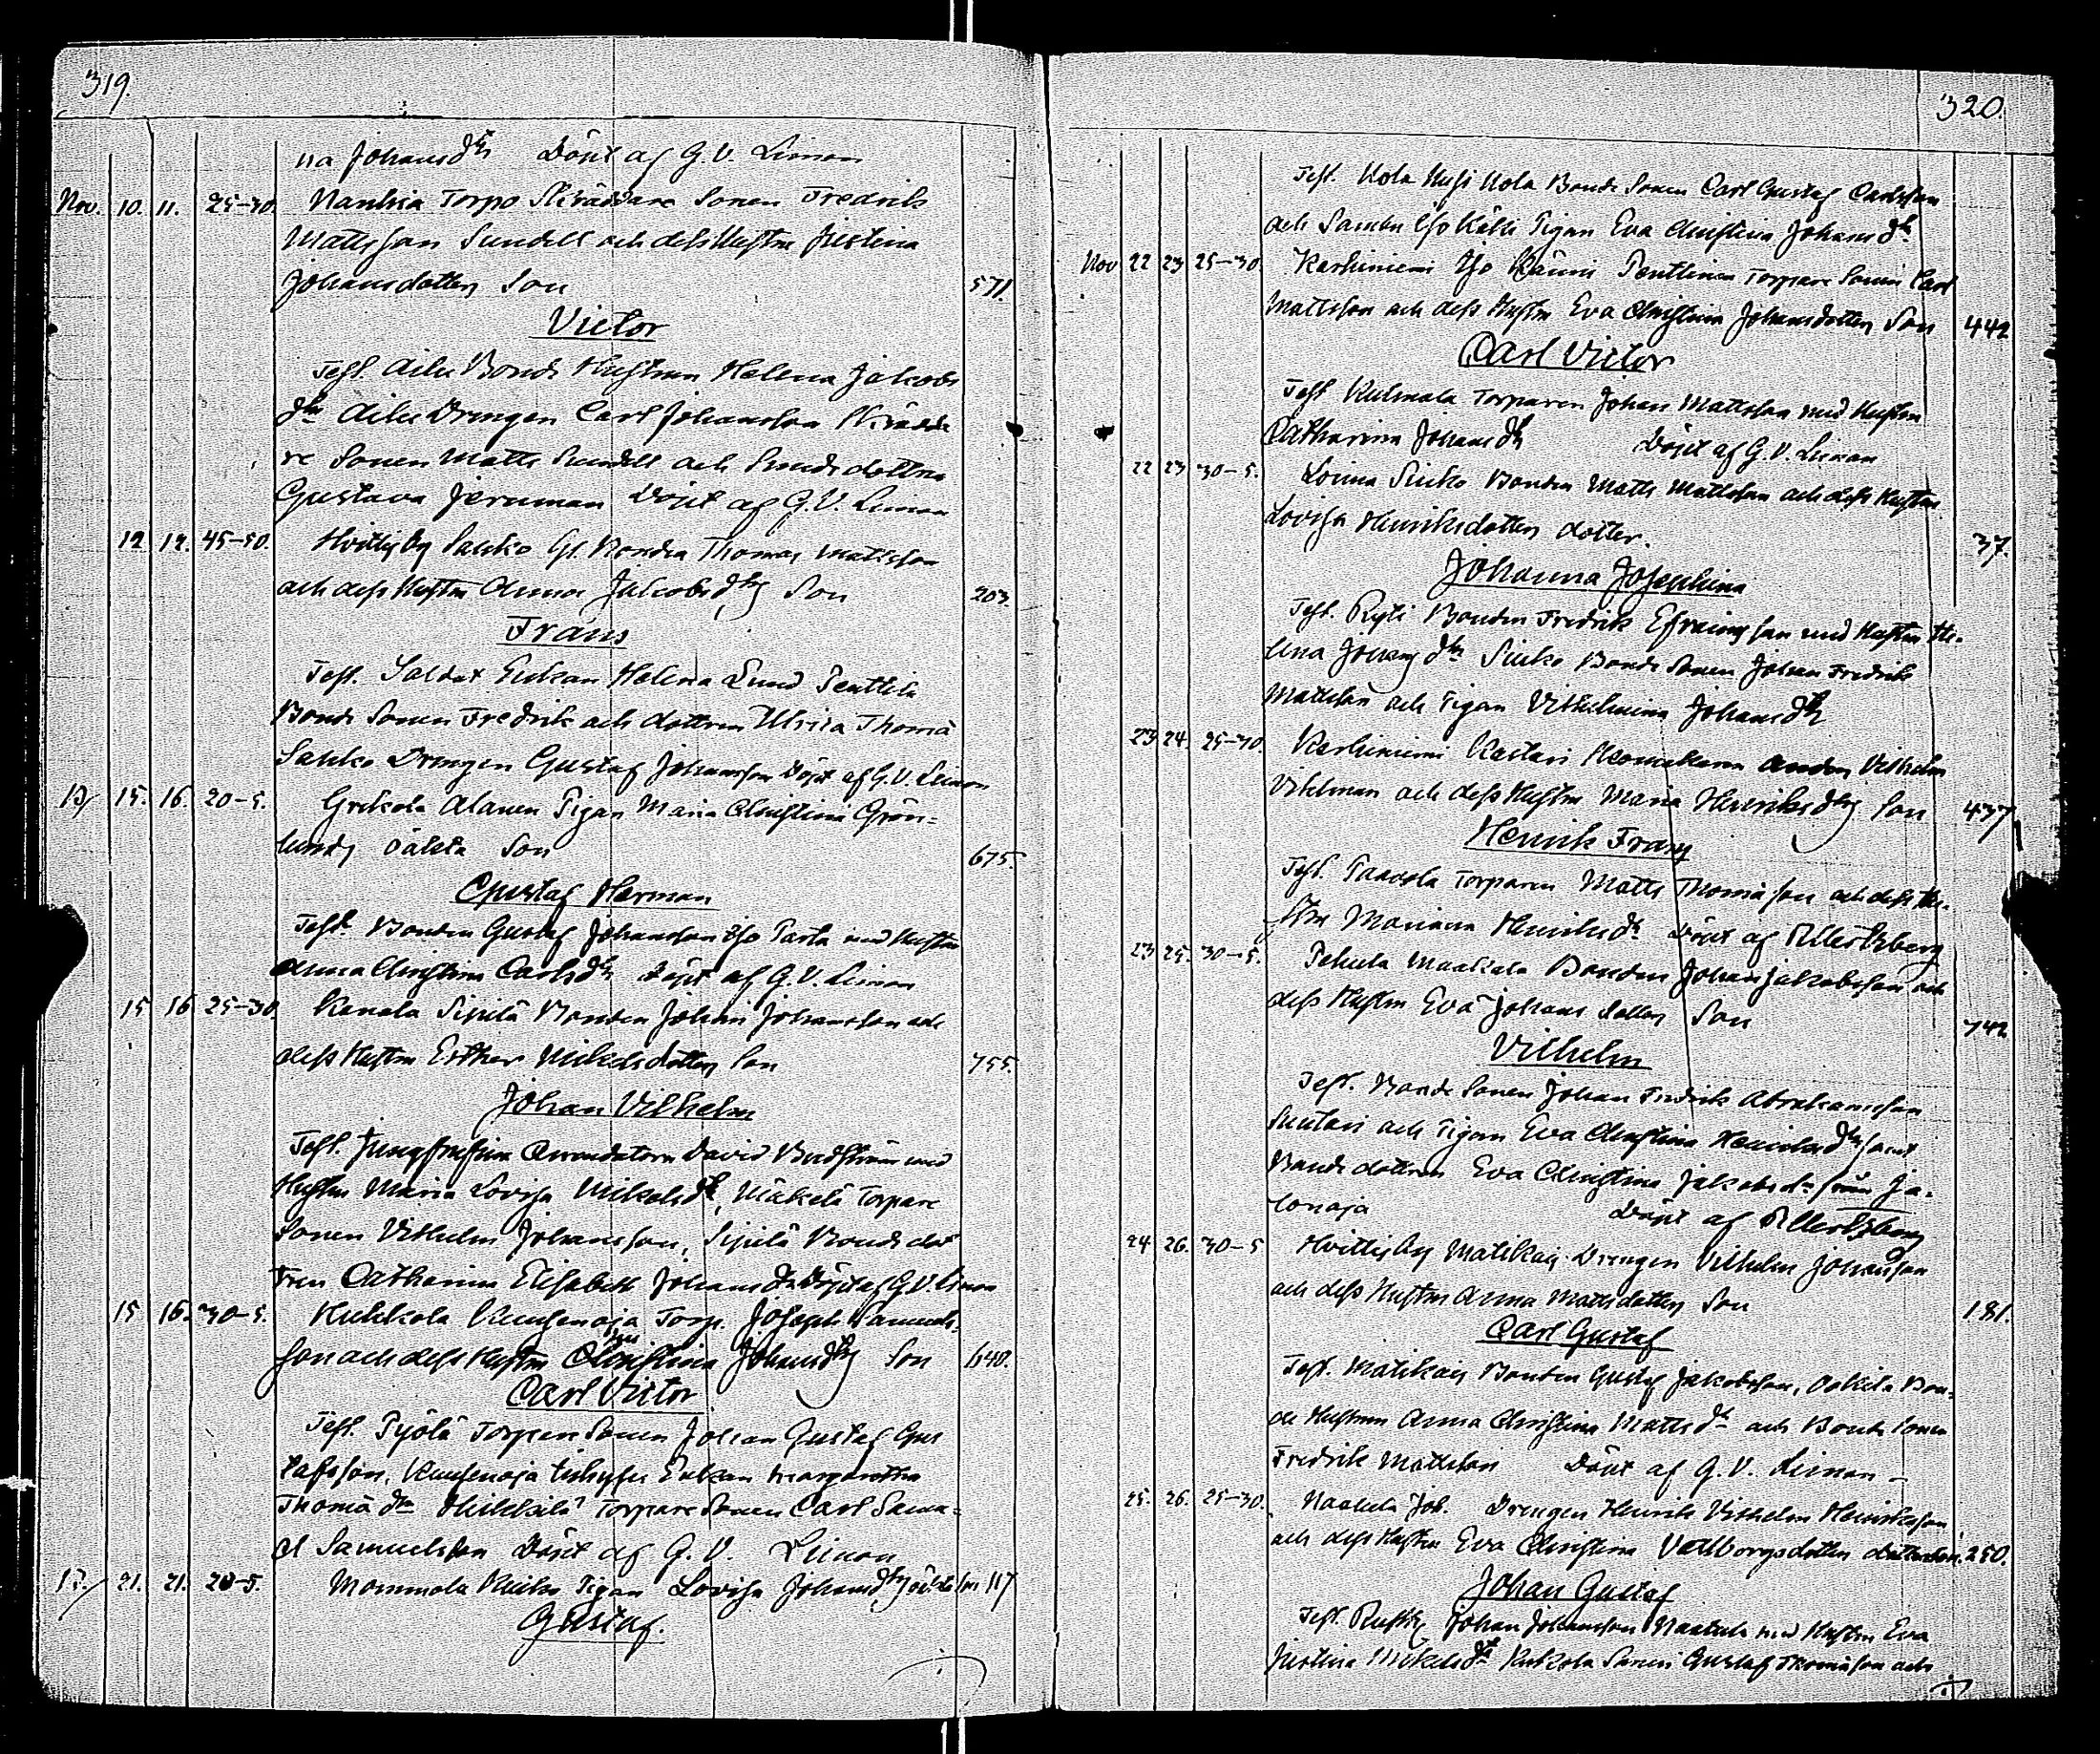 319.
na Johansdtr Döpt af G. V. Limon
Nov. 10. 11. 25-30. Nanhia Torpo Skräddare Sonen Fredrik
Mattsson Sundell och dess Hustru Justina
Johansdotters Son 571.
Victor
Test. Bonde Hustrun Helena Jakobs
dtr Drengen Carl Johansson Skrädda
re Sonen Matts Sundell och
Gustava Döpt af G. V. Limon
12. 12. 45-50. Hvittis by Sahko Bonden Thomas Mattsson
och dess Hustru Anna Jakobsdtrs Son 203.
Frans
Test. Soldat Enkan Helena Lund Penttilä
Bonde Sonen Fredrik och dottren Ulrica Thomä
Sahko Drengen Gustaf Johansson Döpt af G. V. Limon
15. 16. 20-5. Alanen Pigan Maria Christina Grön=
lunds oäkta Son 675.
Gustaf Herman
Test. Bonden Gustaf Johansson Iso Parta med Hustru
Anna Christina Carlsdtr Döpt af G. V. Limon
15 16 25-30. Kanala Sipilä Bonden Johan Johansson och
dess Hustru Esther Mickelsdotters Son 755.
Johan Vilhelm
Test. Arrendatorn David med
Hustru Maria Lovisa Mickelsdtr, Mäkelä Torpare
Sonen Vilhelm Johansson, Sipilä Bonde dot
tren Catharina Elisabeth Johansdtr Döpt af G. V. Limon
15 16. 30-5. Kukkola Torp. Joseph Samuels-
son och dess Hustru Christina Johansdtrs Son 640.
Carl Victor
Test. Pyölä Torpare Sonen Johan Gustaf Gus
tafsson, Enkan Margaretha
Thomä dtr Heikkilä Torpare Sonen Carl Samu=
el Samuelsson Döpt af G. V. Limon
21. 21. 20-5. Mommola Pigan Lovisa Johansdtrs oäkta Son 117
Gustaf.
320.
Test. Kola Kola Bonde Sonen Carl Gustaf Carlsson
och Iso Pigan Eva Christina Johansdtr
Nov 22 23 25-30. Karhiniemi Iso Torpare Sonen Carl
Mattsson och dess Hustru Eva Christina Johansdotters Son 442
Carl Victor
Test Kulmala Torparen Johan Mattsson med Hustru
Catharina Johansdtr Döpt af G. V. Limon
22 23 30-5. Loima Bonden Matts Mattsson och dess Hustru
Lovisa Henriksdotters dotter. 37.
Johanna Josephina
Test. Ryti Bonden Fredrik Efraimsson med Hustru He-
lena Johansdtr Bonde Sonen Johan Fredrik
Mattsson och Pigan Vilhelmina Johansdtr
23 24. 25-30. Karhiniemi Kastari Skomakaren Anders Vilhelm
Vihlman och dess Hustru Maria Henriksdtrs Son 437
Henrik Frans
Test. Paavola Torparen Matts Thomasson och dess Hu-
stru Mariana Henriksdtr Döpt af
23 25. 30-5. Pehula Maakala Bonden Johan Jakobsson och
dess Hustru Eva Johans dotters Son 742
Vilhelm
Test. Bonde Sonen Johan Fredrik Abrahamsson
Suutari och Pigan Eva Christina Henriksdtr samt
Bonde dottren Eva Christina Jakobsdtr från Ja-
lonoja Döpt af
24 26. 30-5 Hvittis by Matikais Drengen Vilhelm Johansson
och dess Hustru Anna Mattsdotters Son 181.
Carl Gustaf
Test. Matikais Bonden Gustaf Jakobsson, Bon-
de Hustrun Anna Christina Mattsdtr och Bonde Sonen
Fredrik Mattsson Döpt af G. V. Limon -
25. 26. 25-30. Naatula Drengen Henrik Vilhelm Henriksson
och dess Hustru Eva Christina Vallborgsdotters 250.
Johan Gustaf
Test. Johan Johansson Naatula med Hustru Eva
Justina Mickelsdtr Kukola Sonen Gustaf Thomasson och